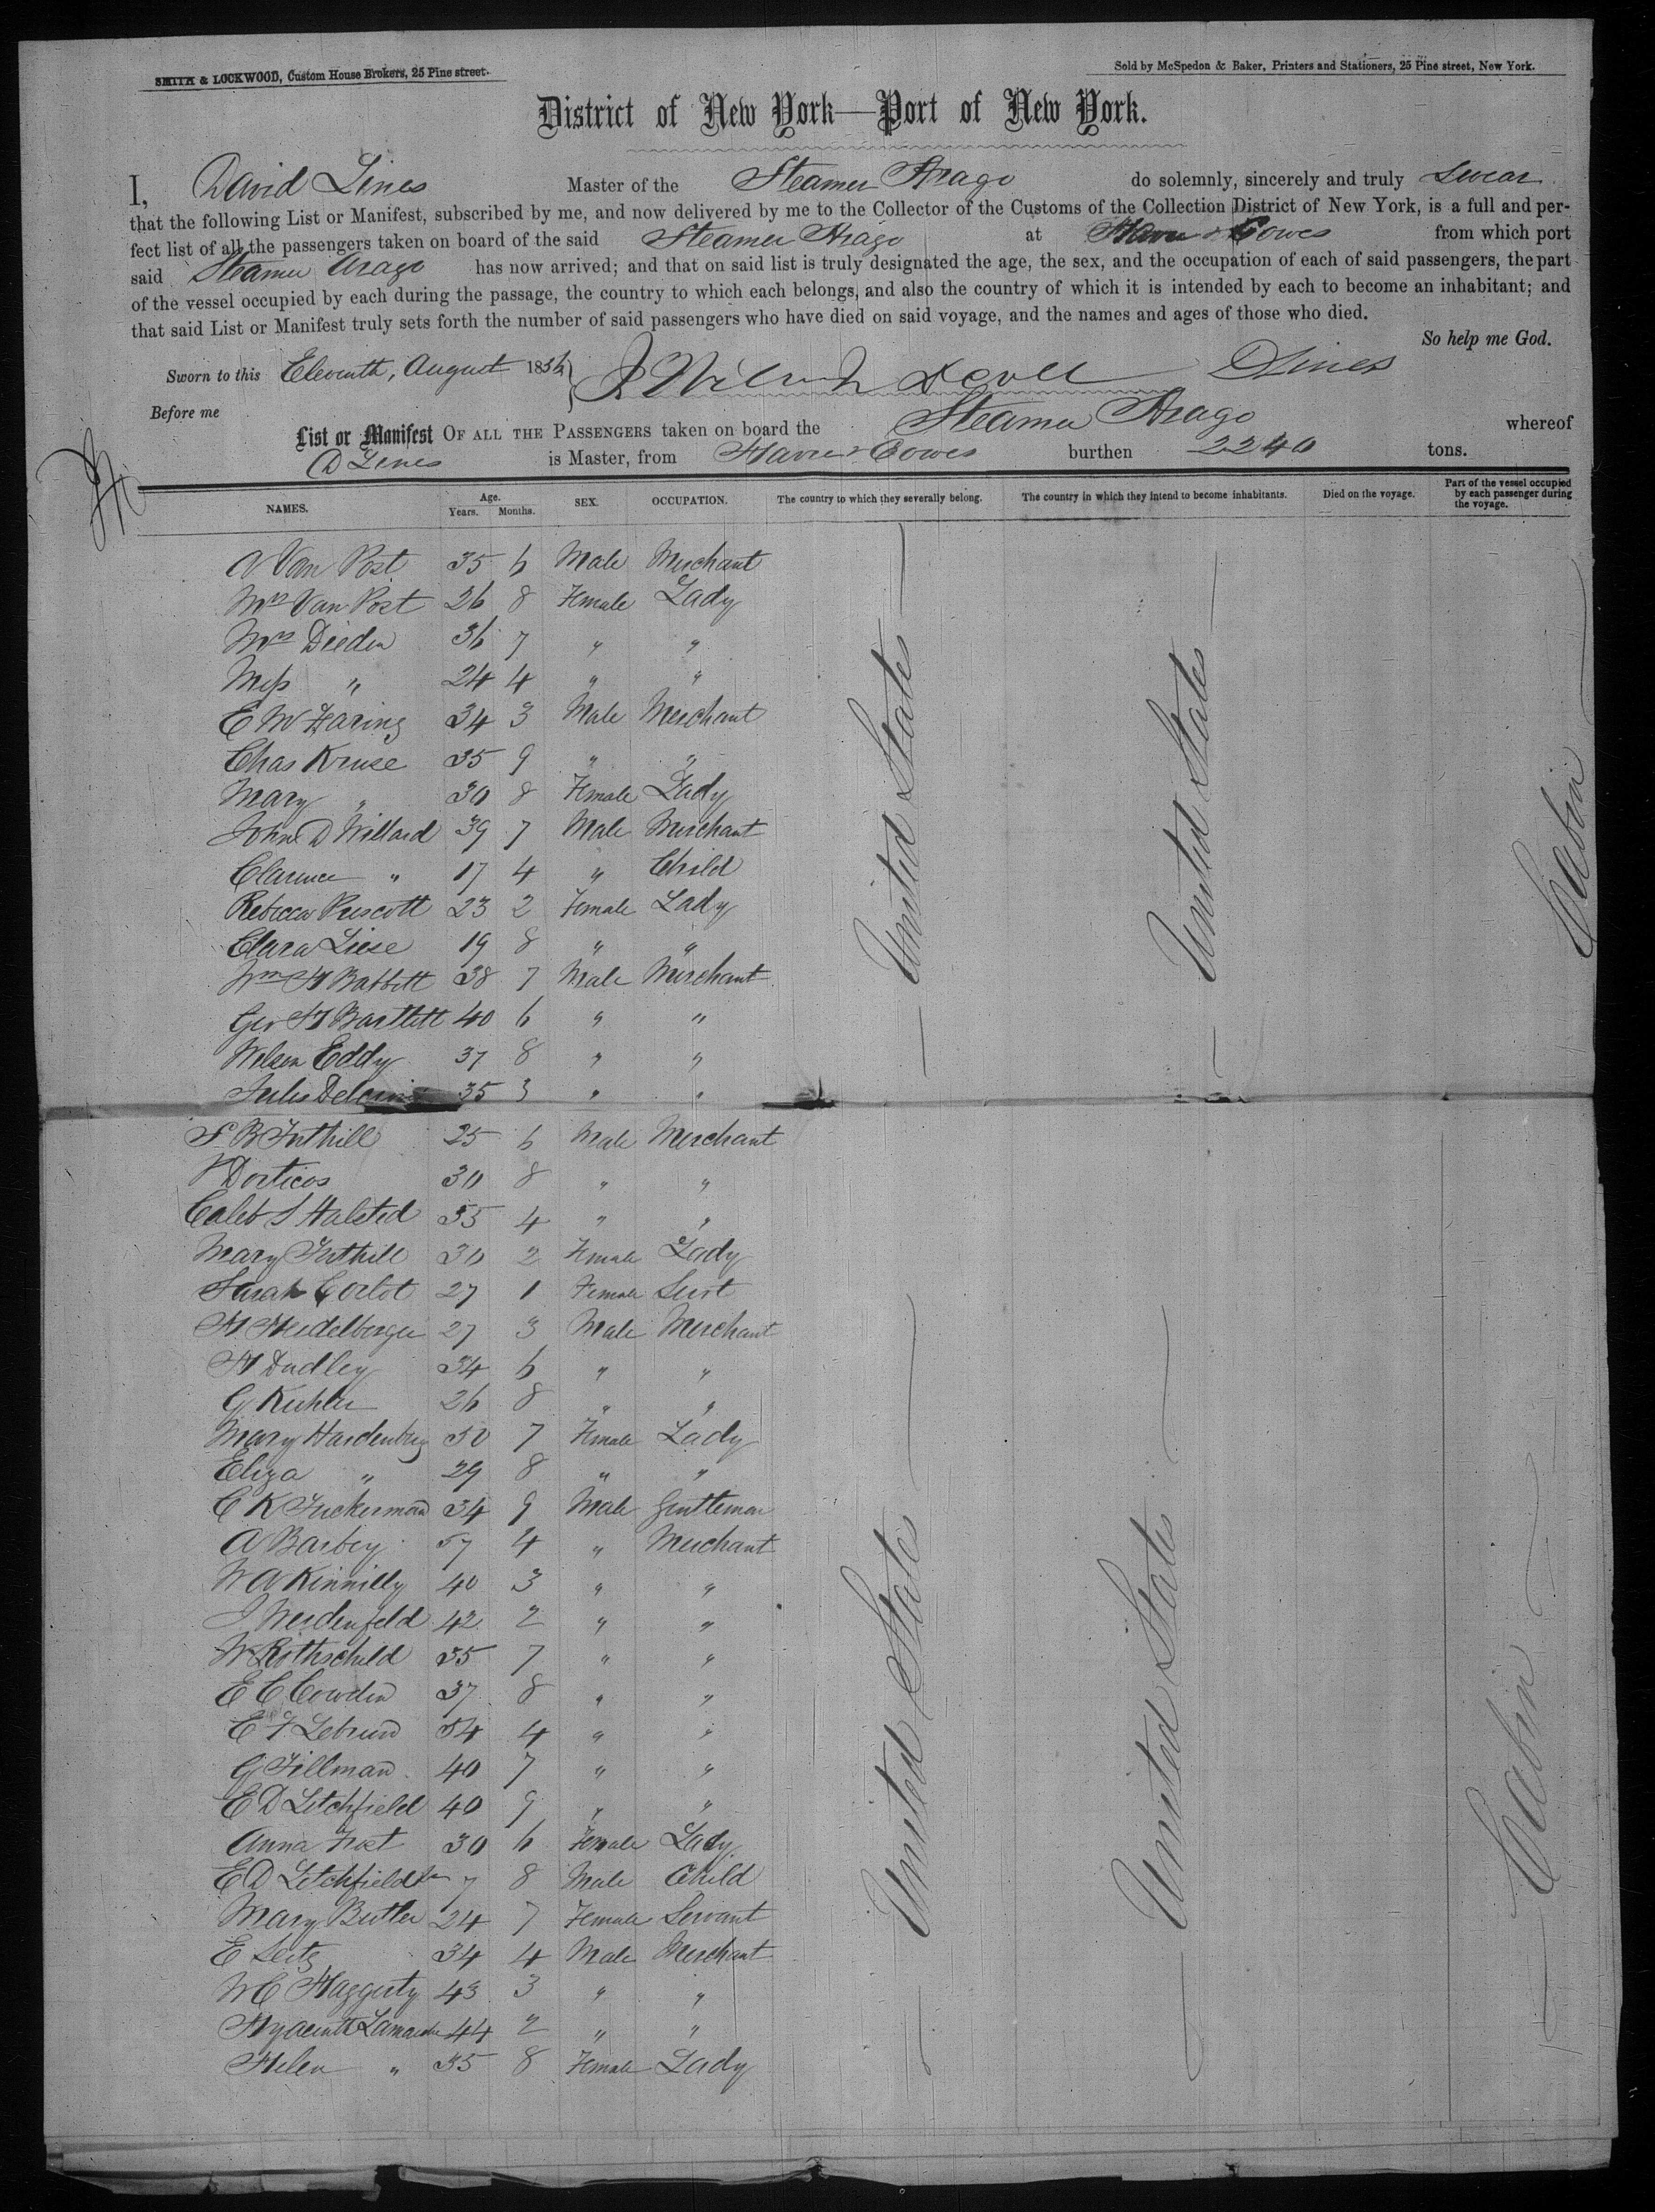 SMITH & LOCKWOOD, Custom House Brokers, 25 Pine street.
Sold by McSpedon & Baker, Printers and Stationers, 25 Pine street, New York.
District of New York—Port of New York.
I, David Lines Master of the Steamer Arago do solemnly, sincerely and truly swear
that the following List or Manifest, subscribed by me, and now delivered by me to the Collector of the Customs of the Collection District of New York, is a full and per-
fect list of all the passengers taken on board of the said Steamer Arago at Havre & Cowes from which port
said Steamer Arago has now arrived; and that on said list is truly designated the age, the sex, and the occupation of each of said passengers, the part
of the vessel occupied by each during the passage, the country to which each belongs, and also the country of which it is intended by each to become an inhabitant; and
that said List or Manifest truly sets forth the number of said passengers who have died on said voyage, and the names and ages of those who died.
So help me God.
Sworn to this Eleventh, August 185 D Lines
Before me
List or Manifest OF ALL THE PASSENGERS taken on board the Steamer Arago whereof
D Lines is Master, from Havre & Cowes burthen 2240 tons.
NAMES. Age. Years. Months. SEX. OCCUPATION. The country to which they severally belong. The country in which they intend to become inhabitants. Died on the voyage. Part of the vessel occupied by each passenger during the voyage.
A Van Post 35 6 Male Merchant
Mrs Van Post 26 8 Female Lady
Mrs Dieden 36 7 " "
Miss " 24 4 " "
E W Haring 34 3 Male Merchant
Chas Kruse 35 9 " "
Mary " 30 8 Female Lady
John D Willard 39 7 Male Merchant
Clarence " 17 4 " Child
Rebecca Prescott 23 2 Female Lady
Clara Liese 19 8 " "
Wm H Babbitt 38 7 Male Merchant
Geo H Bartlett 40 6 " "
Wilson Eddy 37 8 " "
Jules 35 3 " "
United States
United States
Cabin
S B Tuthill 25 6 Male Merchant
Dorticos 30 8 " "
Caleb S Halsted 55 4 " "
Mary Tuthill 30 2 Female Lady
Sarah Corlot 27 1 Female Sert
H Heidelberger 27 3 Male Merchant
H Dudley 34 6 " "
G Kuhler 26 8 " "
Mary Hardenberg 50 7 Female Lady
Eliza " 29 8 " "
C K Tuckerman 34 9 Male Gentleman
A Barbey 57 4 " Merchant
W A Kinnilly 40 3 " "
J Weidenfeld 42 2 " "
W Rothschild 35 7 " "
E C Cowdin 37 8 " "
E F Lebrun 54 4 " "
G Tillman 40 7 " "
E D Litchfield 40 9 " "
Anna 30 6 Female Lady
E D Litchfield Jr 7 8 Male Child
Mary Butler 24 7 Female Servant
E Seitz 34 4 Male Merchant
W C Haggerty 43 3 " "
Hyacinth Lamarche 44 2 " "
Helen " 35 8 Female Lady
United States
United States
Cabin